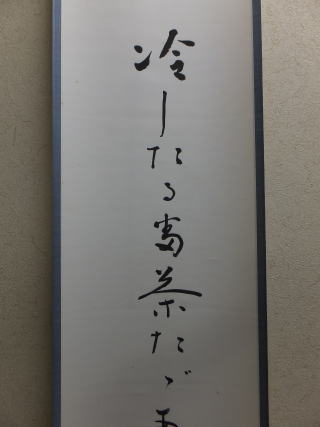 冷したる番茶たゞ